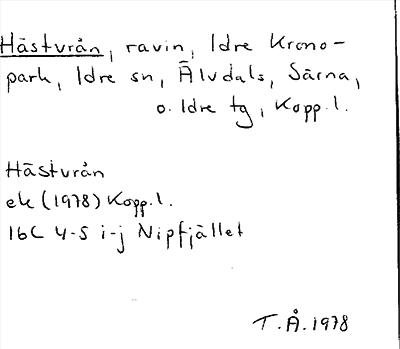 Hästvrån, ravin, Idre Krono-
park, Idre sn, Älvdals, Särna,
o. Idre tg, Kopp. l.
Hästvrån
ek (1978) Kopp. l.
16C 4-5 i-j Nipfjället
T. Å. 1978